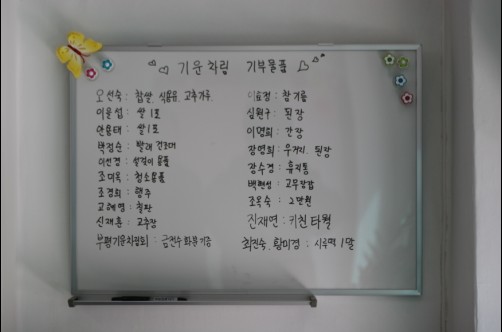 기운차림 기부물품
오선숙 : 찹쌀, 식용유, 고추가루
이은섭 : 쌀 1포
안용태 : 쌀 1포
백점순 : 빨래 건조대
이선경 : 설겆이 용품
조미옥 : 청소용품
조경희 : 행주
고혜영 : 칠판
신재훈 : 고추장
부평기운차림회 :
이효정 : 참기름
심원구 : 된장
이영희 : 간장
장영희 : 우거지, 된장
장수경 : 휴지통
백현성 : 고무장갑
조옥숙 : 2만원
진재면 : 키친타월
최진숙, 황미경 : 시루떡 1말